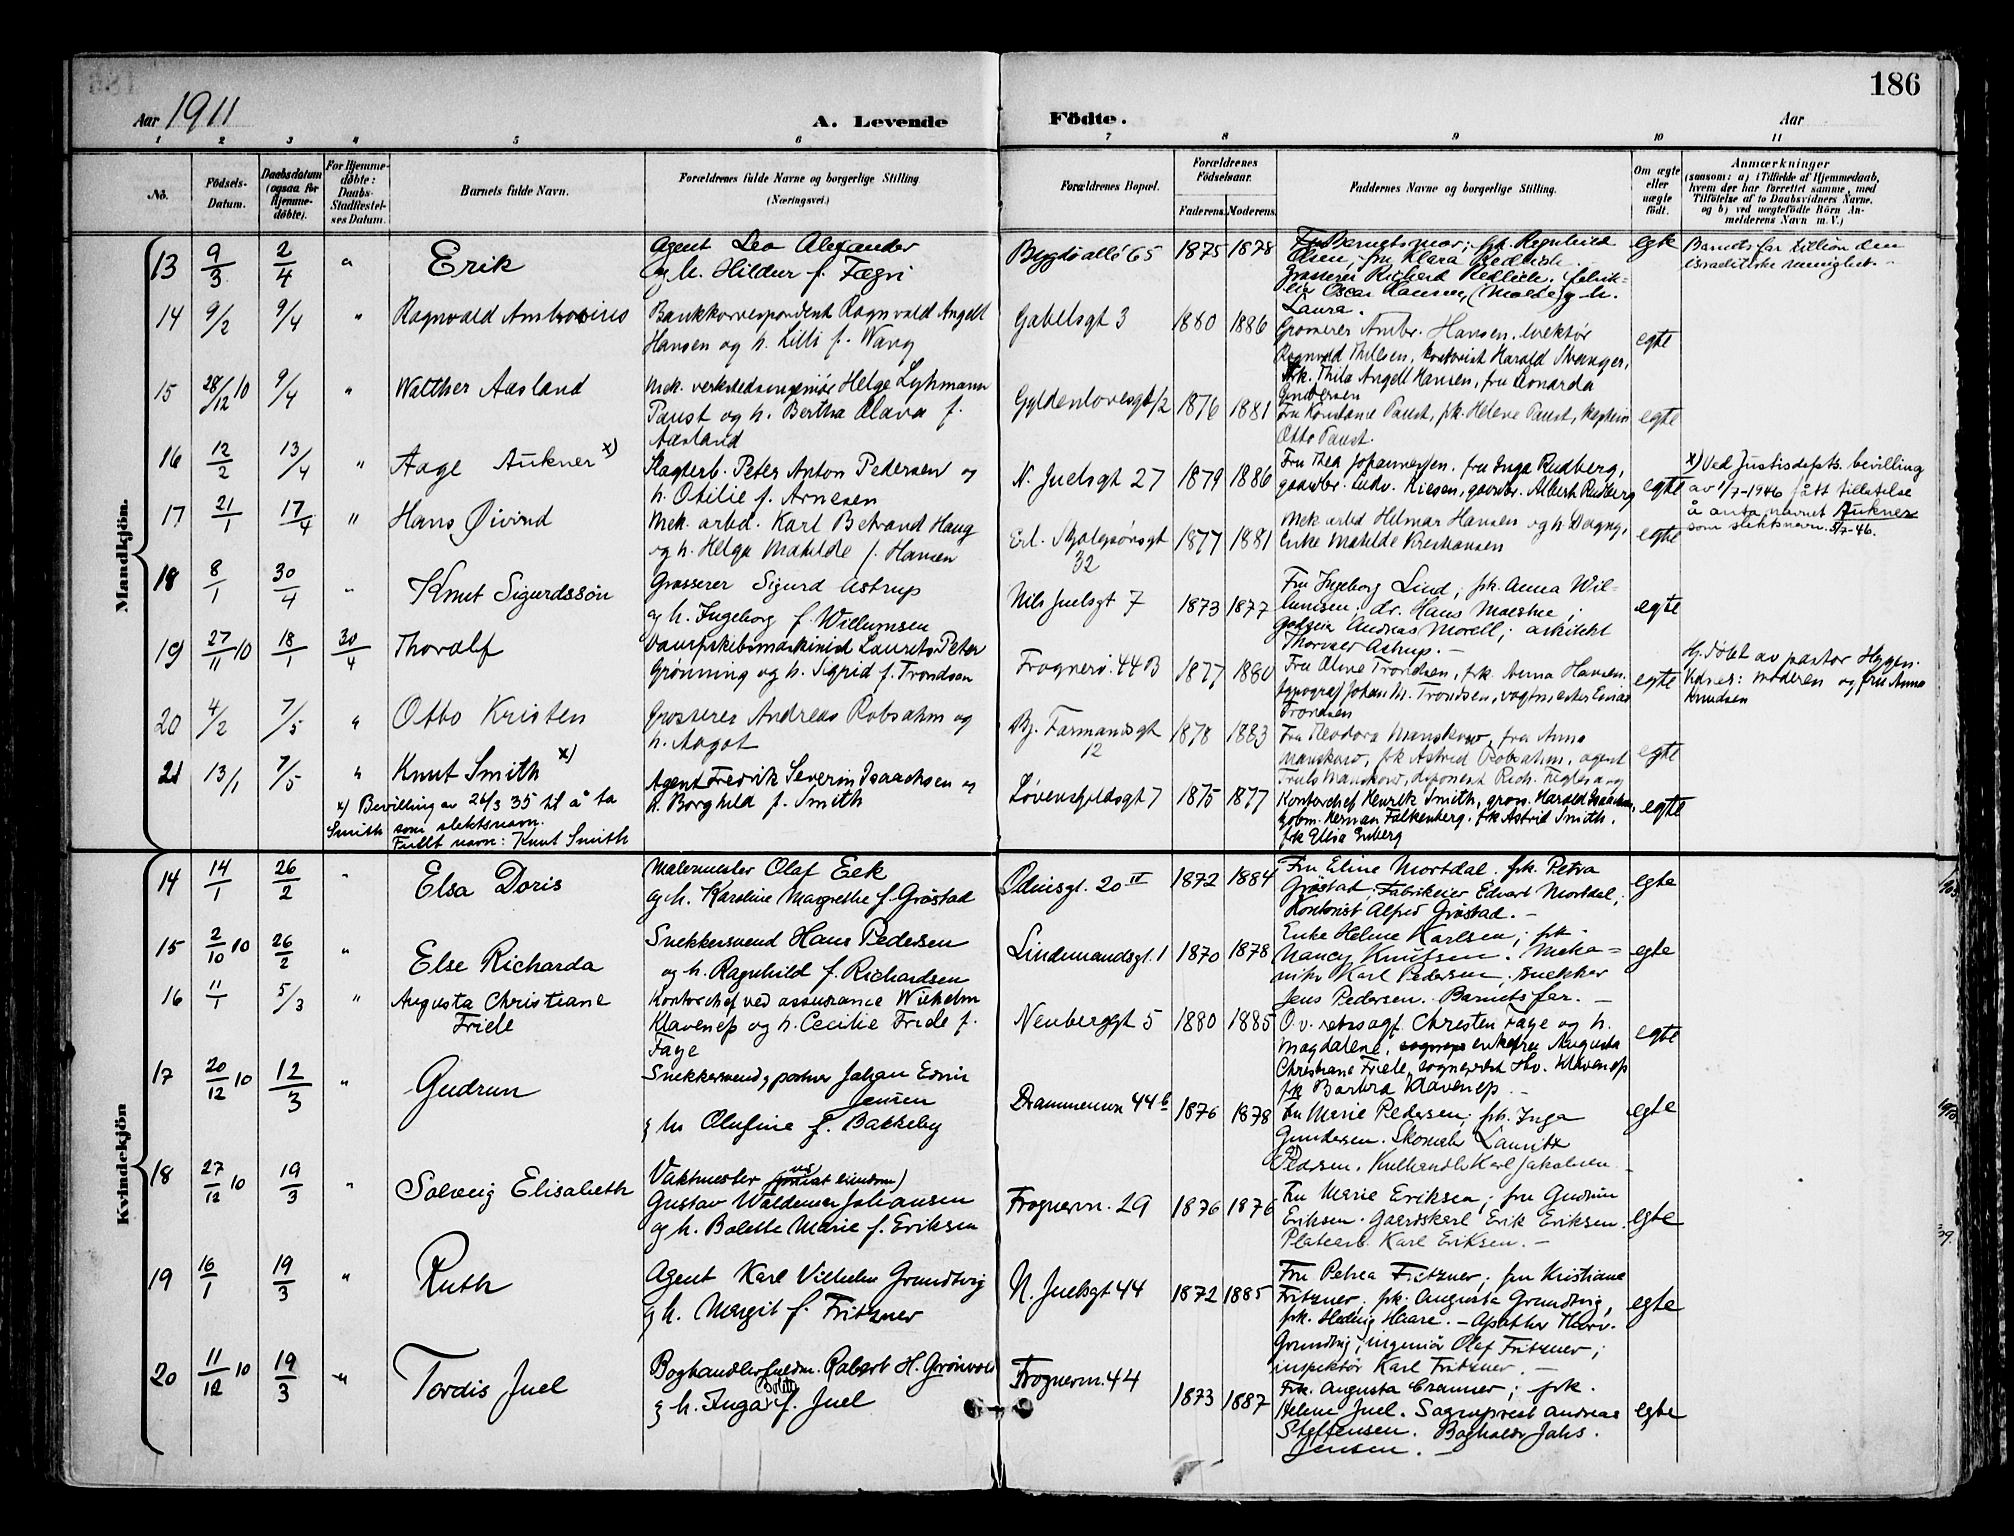 186
Aar 1911
A. Levende Födte.
Aar
1 2 3 4 5 6 7 8 9 10 11
No.
Födsels-Datum.
Daabsdatum (ogsaa for Hjemmedøbte).
For Hjemmedøbte: Daabs-Stadfæstelses Datum.
Barnets fulde Navn.
Forældrenes fulde Navne og borgerlige Stilling
(Næringsvei.)
Forældrenes Bopæl.
Forældrenes Födselsaar.
Faderens. Moderens.
Faddernes Navne og borgerlige Stilling.
Om ægte eller uægte födt.
Anmærkninger
(saasom: a) i Tilfælde af Hjemmedaab, hvem der har forrettet samme, med Tilföielse af to Daabsvidners Navne, og b) ved uegtefödte Börn Anmelderens Navn m. V.)
Mandkjön.
13 9/3 2/4 " Erik
Agent Leo Alexander
og h. Hildur f. Fægri
Bygdø allé 65 1875 1878
Olsen, fru Klara Redlich.
Grosserer Richard Redlich, fabrik-
eier Oscar Hansen, (Molde) og h.
Laura.
egte
Barnets far tillhör den
israelitiske menighet.
14 9/2 9/4 " Ragnvald Ambrosius
Bankkorrespondent Ragnvald Angell
Hansen og h. Lilli f. Wang
Gabelsgt 3 1880 1886
Grosserer Ambr. Hansen,
Ragnvald Thilesen, kontorist Harald
frk. Thila Angell Hansen, fru
Gundersen
egte
15 28/12 10 9/4 " Walther Aasland
Mek. verkstedsingeniør Helge Lyhmann
Paust og h. Bertha Olava f.
Aasland
Gyldenlovesgt 1/2 1876 1881
Fru Konstance Paust, frk. Helene Paust, kaptein
Otto Paust.
egte
16 12/2 13/4 " Aage Aukner x)
Slagterb. Peter Anton Pedersen og
h. Otilie f. Arnesen
N. Juelsgt 27 1879 1886
Fru Thea Johannessen, fru Inga Rudberg,
gaardbr. Ludv. Riesen, gaardbr. Albert Rudberg
egte
x) Ved Justisdepts. bevilling
av 1/7-1946 fått tillatelse
å anta navnet Aukner
som slektsnavn. 5/7-46.
17 21/1 17/4 " Hans Øivind
Mek. arbd. Karl Betrand Haug
og h. Helga Matilde f. Hansen
Erl. Skjalgsønsgt
32
1877 1881
Mek arbd Hilmar Hansen og h. Dagny,
Enke Matilde Kristiansen
egte
18 8/1 30/4 " Knut Sigurdssøn
Grosserer Sigurd Astrup
og h. Ingeborg f. Willumsen
Nils Juelsgt 7 1873 1877
Fru Ingeborg Lind; frk. Anna Wil-
lumsen; dr. Hans
Godseier Andreas Morell; arkitekt
Thorvald Astrup.
egte
19 27/11 10 18/1 30/4 Thoralf
Dampskibsmaskinist Laurits Peter
Grønning og h. Sigrid f. Trondsen
Frognerv. 44B 1877 1880
Fru Oline Trondsen, frk. Anna Hansen.
typograf Johan M. Trondsen,
Trondsen
egte
Hj. døbt av pastor Hygen.
Vidner: moderen og fru Anna
Knudsen
20 4/2 7/5 " Otto Kristen
Grosserer Andreas Robsahm og
h. Aagot
Bj. Farmandsgt
12
1878 1883
Fru Teodora Manskow, fru Anna
Manskow, frk Astrid Robsahm, agent
Truls Manskow, disponent Rich. Ziegler og
egte
21 13/1 7/5 " Knut Smith x)
Agent Fredrik Severin Isaachsen og
h. Borghild f. Smith
Løvenskjoldsgt 7 1875 1877
Kontorchef Henrik Smith, gross. Harald Isaachsen,
Herman Falkenberg. frk Astrid Smith.
frk Elisa Enberg
egte
x) Bevilling av 26/3 35 til å ta
Smith som slektsnavn.
Fullt navn: Knut Smith
Kvindekjön
14 14/1 26/2 " Elsa Doris
Malermester Olaf Eek
og h. Karoline Margrethe f. Grøstad
Odinsgt. 20 IV 1872 1884
Fru Eline Mortdal. frk. Petra
Grøstad; Fabrikeier Edvart Mortdal;
Kontorist Alfred Grøstad.
egte
15 2/10 10 26/2 " Else Richarda
Snekkersvend Hans Pedersen
og h. Ragnhild f. Richardsen
Lindemandsgt. 1 1870 1878
Enke Helene Karlsen; frk.
Nancy Knutsen. Meka-
niker Karl Pedersen; snekker
Jens Pedersen. Barnets far.
egte
16 11/1 5/3 " Augusta Christiane
Friele
Kontorchef ved assurance Wilhelm
Klaveness og h. Cecilie Friele f.
Faye
Neuberggt 5 1880 1885
O.r. retssagf. Christen Faye og h.
Magdalene, enkefru Augusta
Christiane Friele, sogneprest Klaveness
frk Barbra Klaveness.
egte
17 20/12 10 12/3 " Gudrun
Snekkersvend Johan Edvin
Jensen
og h. Olufine f. Bakkeby
Drammensvn 44 b 1876 1878
Fru Marie Pedersen; frk. Inga
Gundersen. Skomaker Lauritz
Pedersen. Kulhandler Karl Jakobsen
egte
18 27/12 10 19/3 " Solveig Elisabeth
Vaktmester
Gustav Waldemar Johansen
og h. Bolette Marie f. Eriksen
Frognervn. 29 1876 1876
Fru Marie Eriksen; fru Gudrun
Eriksen. Gaardskarl Erik Eriksen.
Platearb. Karl Eriksen.
egte
19 16/1 19/3 " Ruth
Agent Karl Vilhelm Grundtvig
og h. Margit f. Fritzner
N. Juelsgt 44 1872 1885
Fru Petrea Fritzner; fru Kristiane
Fritzner; frk. Augusta Grundtvig,
frk. Hedvig Haare. - Apotheker Thorv.
Grundtvig; ingeniør Olaf Fritzner;
inspektør Karl Fritzner.
egte
20 11/12 10 19/3 " Tordis Juel
Boghandlerfuldm. Robert H. Grönvold
og h. Inga Bolita f. Juel
Frognervn. 44 1873 1887
Frk. Augusta Cranner; frk.
Helene Juel. Sogneprest Andreas
Steffensen. Bogholder Johs.
Jensen.
egte